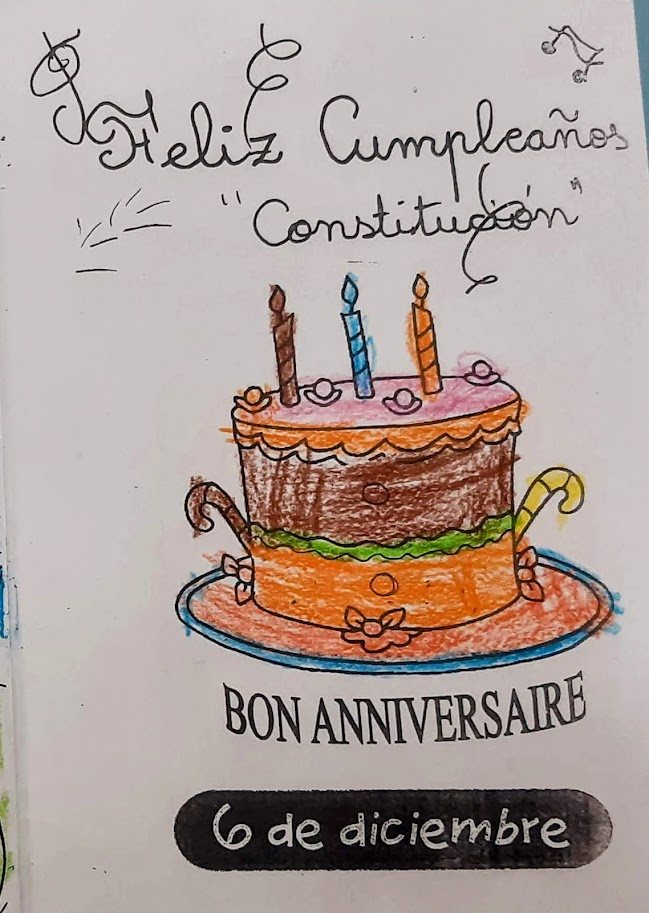 Feliz Cumpleaños
"Constitución"
BON ANNIVERSAIRE
6 de diciembre